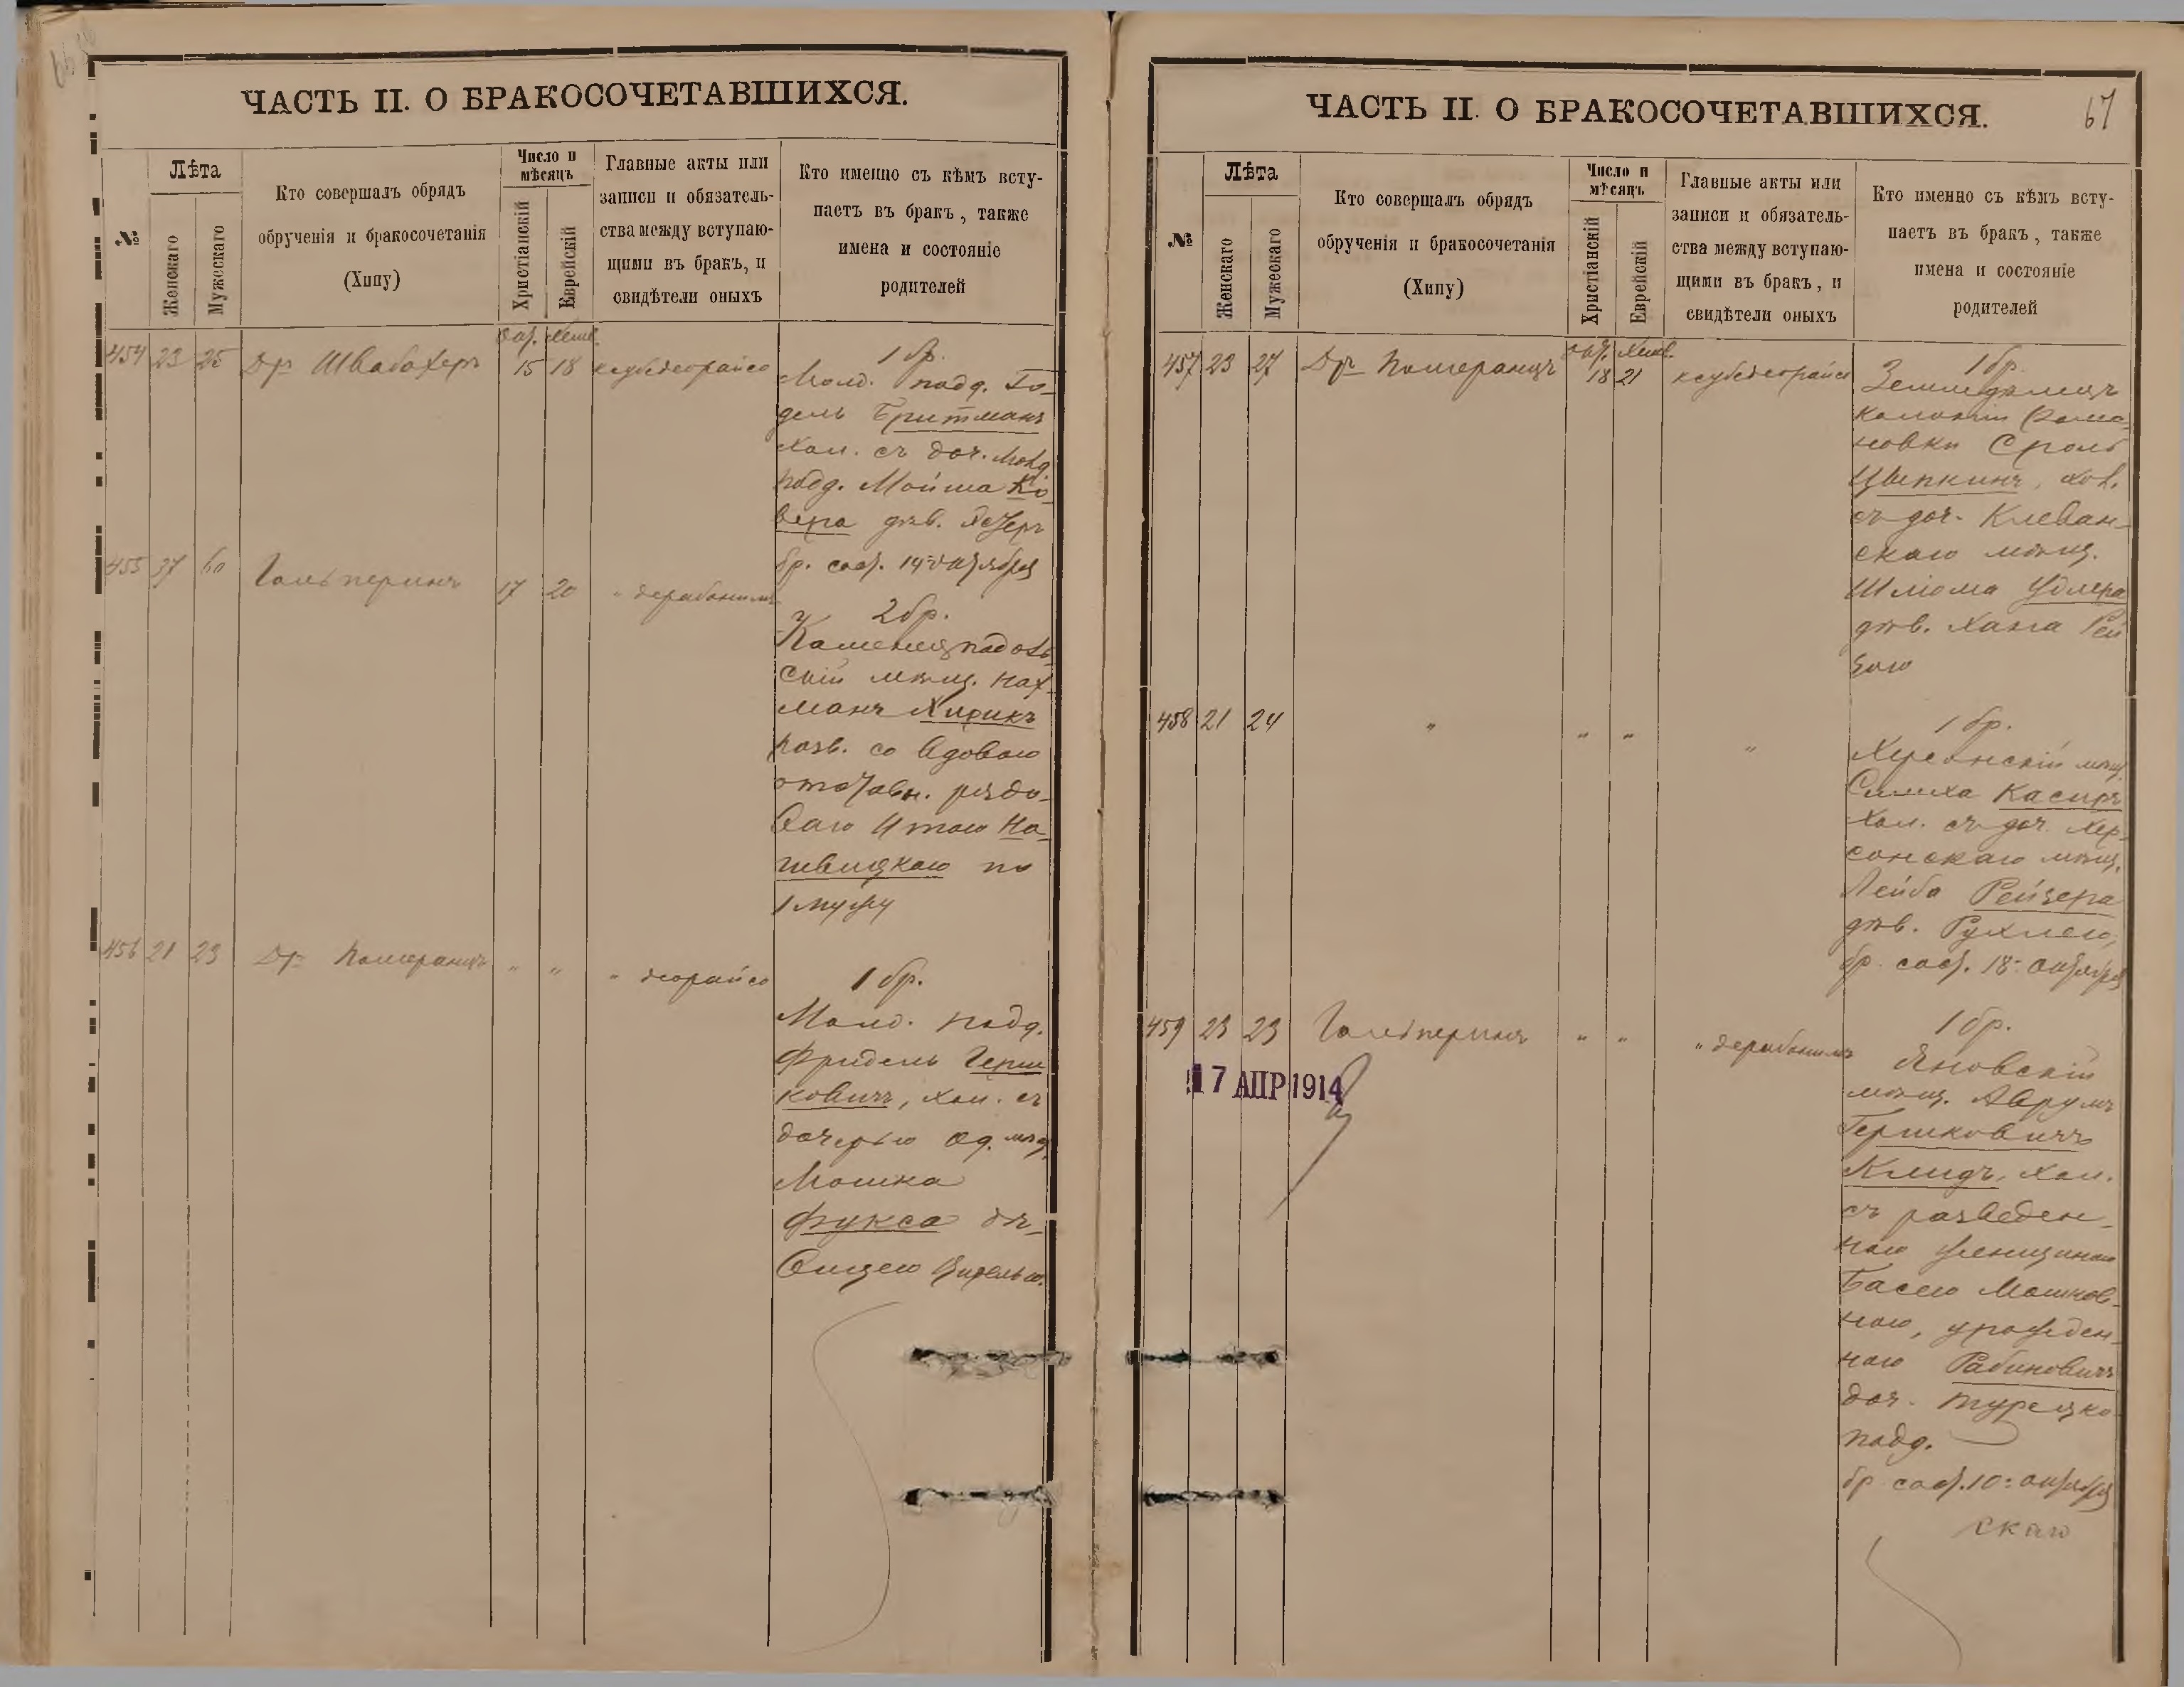 ЧАСТЬ II. О БРАКОСОЧЕТАВШИХСЯ.
№
Лѣта
Женскаго
Мужескаго
Кто совершалъ обрядъ
обрученія и бракосочетанія
(Хипу)
Число и
мѣсяцъ
Христіанскій
Еврейскій
Главные акты или
записи и обязатель-
ства между вступаю-
щими въ бракъ, и
свидѣтели оныхъ
Кто именно съ кѣмъ всту-
паетъ въ бракъ, также
имена и состояніе
родителей
454 23 25 Др Швабахеръ 15 18
1 бр.
Молд. подд. Го-
дель Бритманъ
хол. съ доч. молд.
подд. Мойша Ко-
вера дѣв.
бр. сос. 14 октября
455 37 60 Гальперинъ 17 20 " дерабонимъ
2 бр.
Каменецподоль-
скій мѣщ. Нах-
манъ Хирикъ
разв. со вдовою
отставн. рядо-
ваго Итою На-
гивицкою по
1 мужу
456 21 23 Др Померанцъ " " " деорайсо
1 бр.
Молд. подд.
Фридель Герш
ковичъ, хол. съ
дочерью Од. мѣщ.
Мошка
Фукса дѣ-
вицею
ЧАСТЬ II. О БРАКОСОЧЕТАВШИХСЯ.
67
№
Лѣта
Женскаго
Мужескаго
Кто совершалъ обрядъ
обрученія и бракосочетанія
(Хипу)
Число и
мѣсяцъ
Христіанскій
Еврейскій
Главные акты или
записи и обязатель-
ства между вступаю-
щими въ бракъ, и
свидѣтели оныхъ
Кто именно съ кѣмъ всту-
паетъ въ бракъ, также
имена и состояніе
родителей
457 23 27 Др Померанцъ 18 21
1 бр.
Земледѣлецъ
колоніи Рома-
новки Сроль
Цыпкинъ, хол.
съ доч. Клеван-
скаго мѣщ.
Шліома Удлера
дѣв. Хана Рей
зою
458 21 24 " " " "
1 бр.
Херсонскій мѣщ.
Симха Касиръ
хол. съ доч. Хер-
сонскаго мѣщ.
Лейба Рейзера
дѣв. Рухлею,
бр. сос. 18 октября
459 23 23 Гальперинъ " " " дерабонимъ
17 АПР 1914
1 бр.
Яновскій
мѣщ. Аврумъ
Гершковичъ
Клидъ, хол.
съ разведен-
ною женщиною
Басею Мошков-
ною, урожден-
ною Рабиновичъ
доч. турецко
подд.
бр. сос. 10 октября
скаго